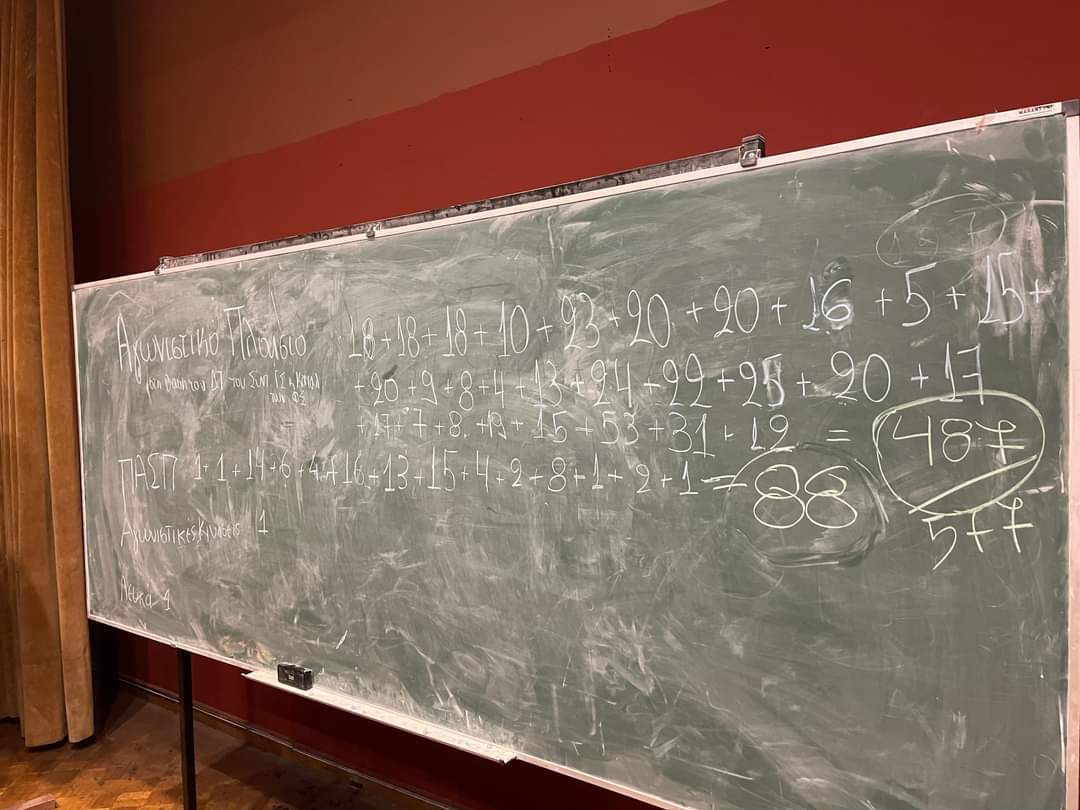 Αγωνιστικό Πλαίσιο 18+18+18+10+23+20+20+16+5+15+
+20+9+8+4+13+24+22+25+20+17
+17+7+8+19+15+53+31+12 = 487
ΠΑΣΠ 1+1+14+6+4+16+13+15+4+2+8+1+2+1 = 88
577
Αγωνιστικές Κινήσεις 1
Λευκά 1